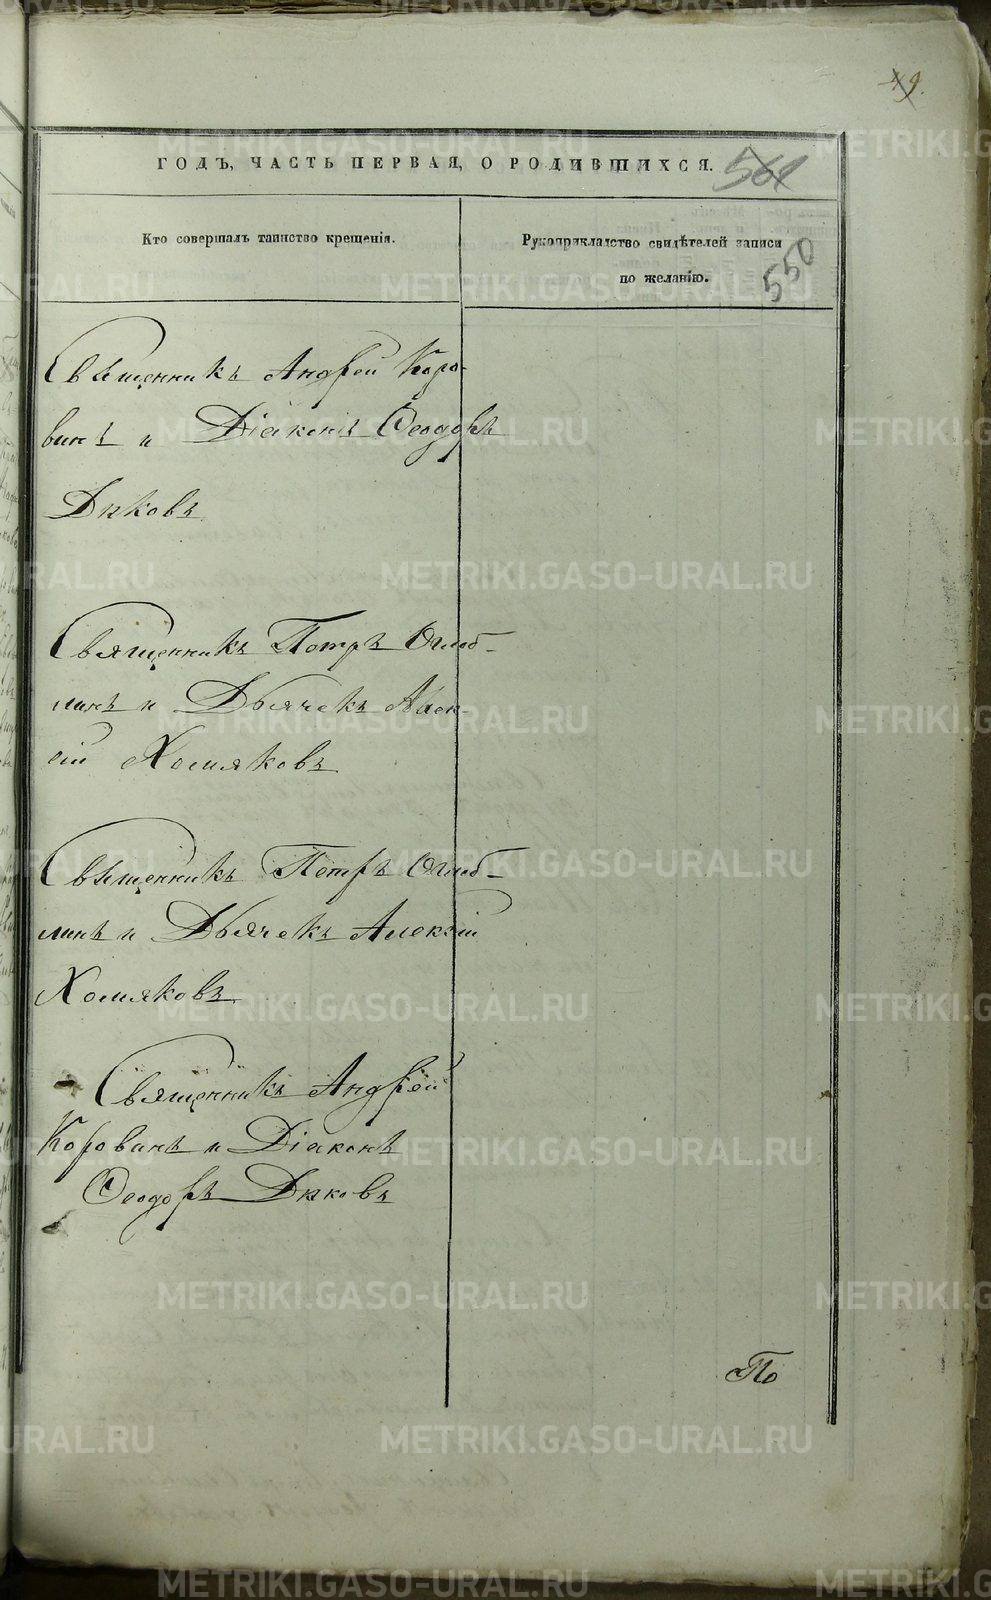 49.
ГОДЪ, ЧАСТЬ ПЕРВАЯ, О РОДИВШИХСЯ.
561
Кто совершалъ таинство крещенія.
Рукоприкладство свидѣтелей записи
по желанію.
550
Священникъ Андрей Коро-
винъ и Діаконъ Ѳеодоръ
Дьковъ
Священникъ Петръ Оглоб-
линъ и Дьячекъ Алек-
ѣй Хомяковъ
Священникъ Петръ Оглоб-
линъ и Дьячекъ Алексѣй
Хомяковъ
Священникъ Андрей
Коровинъ и Діаконъ
Ѳеодоръ Дьковъ
По
METRIKI.GASO-URAL.RU